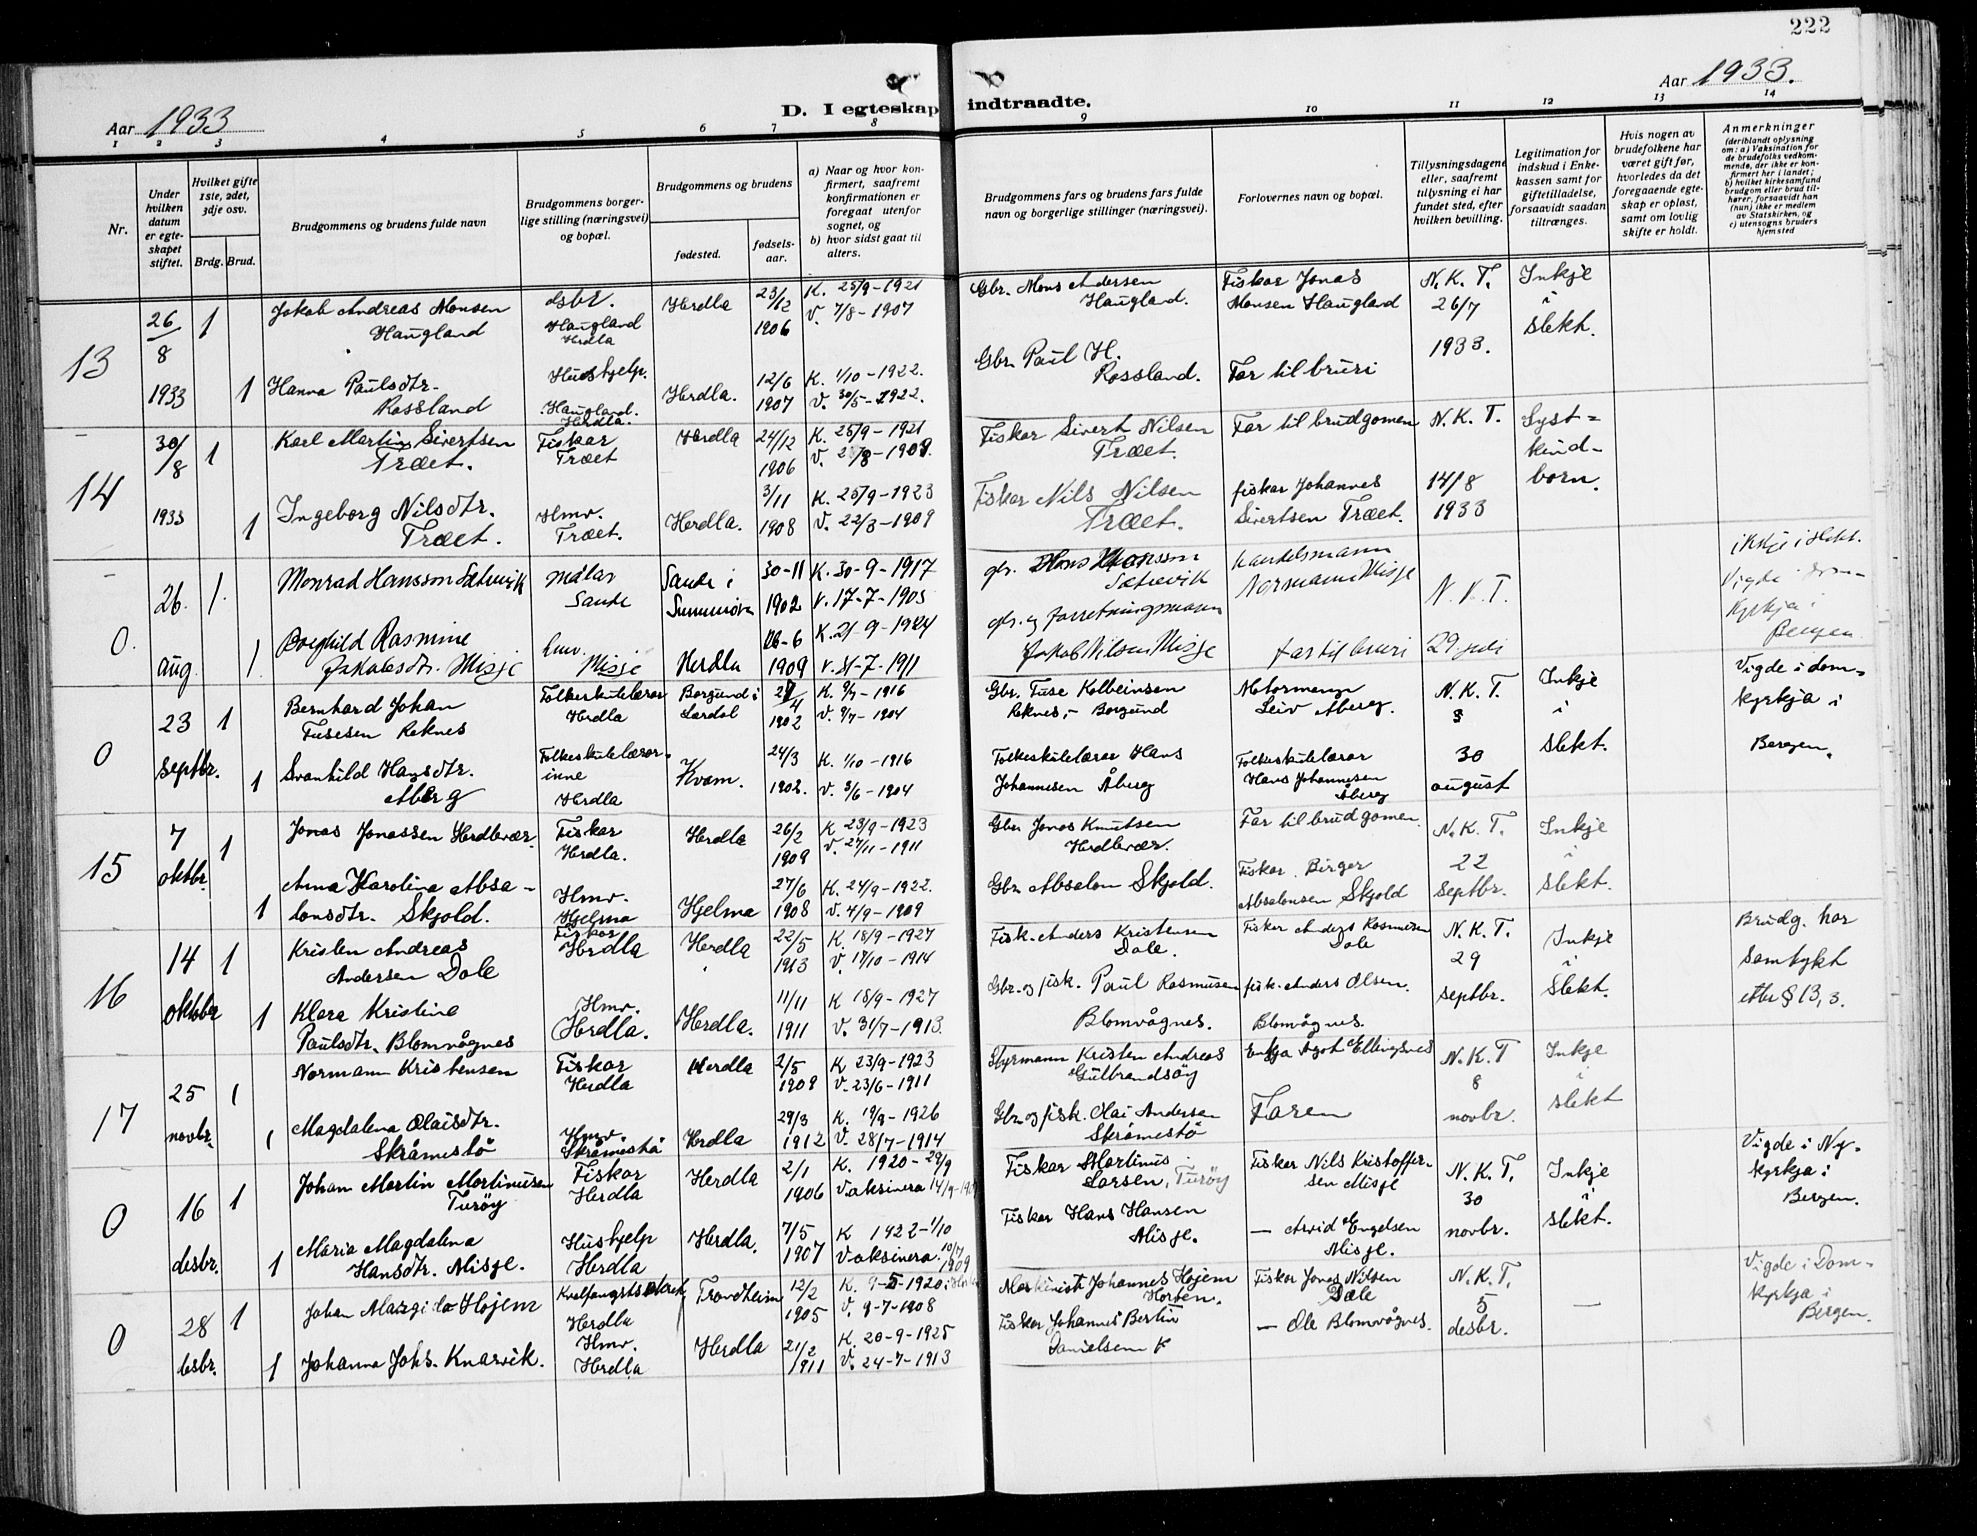 222
Aar 1933
D. I egteskap indtraadte.
Aar 1933.
1 2 3 4 5 6 7 8 9 10 11 12 13 14
Nr.
Under hvilken datum er egteskapet stiftet.
Hvilket gifte 1ste, 2det, 3dje osv.
Brdg. Brud.
Brudgommens og brudens fulde navn
Brudgommens borgerlige stilling (næringsvei) og bopæl.
Brudgommens og brudens
fødested.
fødselsaar.
a) Naar og hvor konfirmert, saafremt konfirmationen er foregaat utenfor sognet, og
b) hvor sidst gaat til alters.
Brudgommens fars og brudens fars fulde navn og borgerlige stillinger (næringsvei).
Forlovernes navn og bopæl.
Tillysningsdagene eller, saafremt tillysning ei har fundet sted, efter hvilken bevilling.
Legitimation for indskud i Enkekassen samt for giftetilladelse, forsaavidt saadan tiltrænges.
Hvis nogen av brudefolkene har været gift før, hvorledes da det foregaaende egteskap er opløst, samt om lovlig skifte er holdt.
Anmerkninger
(deriblandt oplysning om: a) Vaksination for de brudefolks vedkommende, der ikke er konfirmert her i landet; b) hvilket kirkesamfund brudgom eller brud tilhører, forsaavidt han (hun) ikke er medlem av Statskirken, og c) utensogns bruders hjemsted
13
26/8 1933
1 Jakob Andreas Monsen Haugland
Gbr. Haugland Herdla
Herdla
23/12 1906
K. 25/9-1921
V. 7/8-1907
Gbr. Mons Andersen Haugland.
Fiskar Jonas Monsen Haugland
N.K.T. 26/7 1933.
Inkje i slekt.
1 Hanna Paulsdtr. Rossland
Hushjelp. Haugland. Herdla.
Herdla.
12/6 1907
K. 1/10-1922.
V. 30/5-1922.
Gbr. Paul H. Rossland.
Far til bruri
14
30/8 1933
1 Karl Martin Sivertsen Træet.
Fiskar Træet
Herdla
24/12 1906
K. 25/9-1921
Fiskar Sivert Nilsen Træet.
Far til brudgomen
N.K.T. 14/8 1933
Systkindborn.
1 Ingeborg Nilsdtr. Træet.
Hmv. Træet.
Herdla.
3/11 1908
K. 25/9-1923
V. 22/8-1909
Fiskar Nils Nilsen Træet.
fiskar Johannes Sivertsen Træet.
0.
26. aug
1. Monrad Hansson Sætrevik
Målar Sande
Sande i Sunnmøre
30-11 1902
K. 30-9-1917
V. 17-7-1905
gbr. Hans Hansson Sætrevik
handelsmann Normann Misje
N.K.T. 29 juli
ikkje i slekt.
Vigde i domkyrkja i Bergen
1. Borghild Rasmine Jakobsdtr. Misje
hmv. Misje
Herdla
26-6 1909
K. 21-9-1924
V. 31-7-1911
gbr. og forretningsmann Jakob Nilsen Misje
far til bruri
0
23 septbr.
1 Bernhard Johan Tusesen Reknes
Folkeskulelærar Herdla
Borgund i Lærdal
27/4 1902
K. 9/7-1916
V. 9/7-1904
Gbr. Tuse Kolbeinsen Reknes, - Borgund
Motormann Leiv Åberg.
N.K.T. 30 august
Inkje i slekt.
Vigde i domkyrkja i Bergen.
1 Svanhild Hansdtr. Åberg
Folkeskulelærarinne Herdla
Kvam.
24/3 1902.
K. 1/10-1916
V. 3/6-1904
Folkeskulelærar Hans Johannesen Åberg
Folkeskulelærar Hans Johannesen Åberg
15
7 oktbr.
1 Jonas Jonassen Herdlevær.
Fiskar Herdla.
Herdla
26/2 1909
K 23/9-1923
V. 27/11-1911
Gbr Jonas Knutsen Herdlevær.
Far til brudgomen.
N.K.T. 22 septbr.
Inkje i slekt.
1 Anna Karolina Absalonsdtr. Skjold.
Hmv. Hjelma
Hjelma
27/6 1908
K. 24/9-1922.
V. 4/9-1909
Gbr Absalon Skjold.
Fiskar. Birger Absalonsen Skjold
16
14 oktbr
1 Kristen Andreas Andersen Dale
Fiskar Herdla
Herdla
22/5 1913
K. 18/9-1927
V. 17/10-1914
Fisk. Anders Kristensen Dale.
Fisker Anders Rasmusen Dale
N.K.T. 29 septbr.
Inkje i slekt.
Brudg. har samtykt etter § 13, 3.
1 Klara Kristine Paulsdtr. Blomvågnes
Hmv. Herdla.
Herdla.
11/11 1911
K 18/9-1927
V. 31/7-1913.
Gbr. og fisk. Paul Rasmusen Blomvågnes.
fisk. Anders Olsen. Blomvågnes.
17
25 novbr.
1 Normann Kristensen
Fiskar Herdla
Herdla
2/5 1908
K 23/9-1923
V. 23/6-1911
Styrmann Kristen Andreas Gulbrandsøy
Enkja Agot Ellingsnes
N.K.T 8 novbr.
Inkje i slekt
1 Magdalena Olaisdtr. Skråmestø
Hmv. Skråmestø
Herdla
29/3 1912
K. 19/9-1926
V. 28/7-1914
Gbr. og fisk. Olai Andersen Skråmestø
Faren
0
16 desbr.
1 Johan Martin Martinusen Turøy
Fiskar Herdla
Herdla
2/1 1906
K. 1920-29/9
Vaksinera 14/9
Fiskar Martinus Larsen, Turøy
Fiskar Nils Kristoffersen Misje
N.K.T. 30 novbr.
Inkje i slekt.
Vigde i Nykyrkja i Bergen.
1 Maria Magdalena Hansdtr. Misje.
Hushjelp Herdla
Herdla.
7/5 1907
K 1922-1/10
Vaksinera 10/7 1909
Fiskar Hans Hansen Misje.
- Arvid Engelsen Misje.
0
28 desbr.
1 Johan Hojem
Herdla
Trondheim
12/2 1905
K. 9-5-1920
V. 9-7-1908
Maskinist Johannes Hojem Horten.
Fiskar Jonas Nilsen Dale
N.K.T. 5 desbr.
-
Vigde i Domkyrkja i Bergen.
1 Johanna Johs. Knarvik.
Hmv. Herdla
Herdla
21/2 1911
K. 20-9-1925
V. 24-7-1913
Fiskar Johannes Bertin Danielsen K
- Ole Blomvågnes.